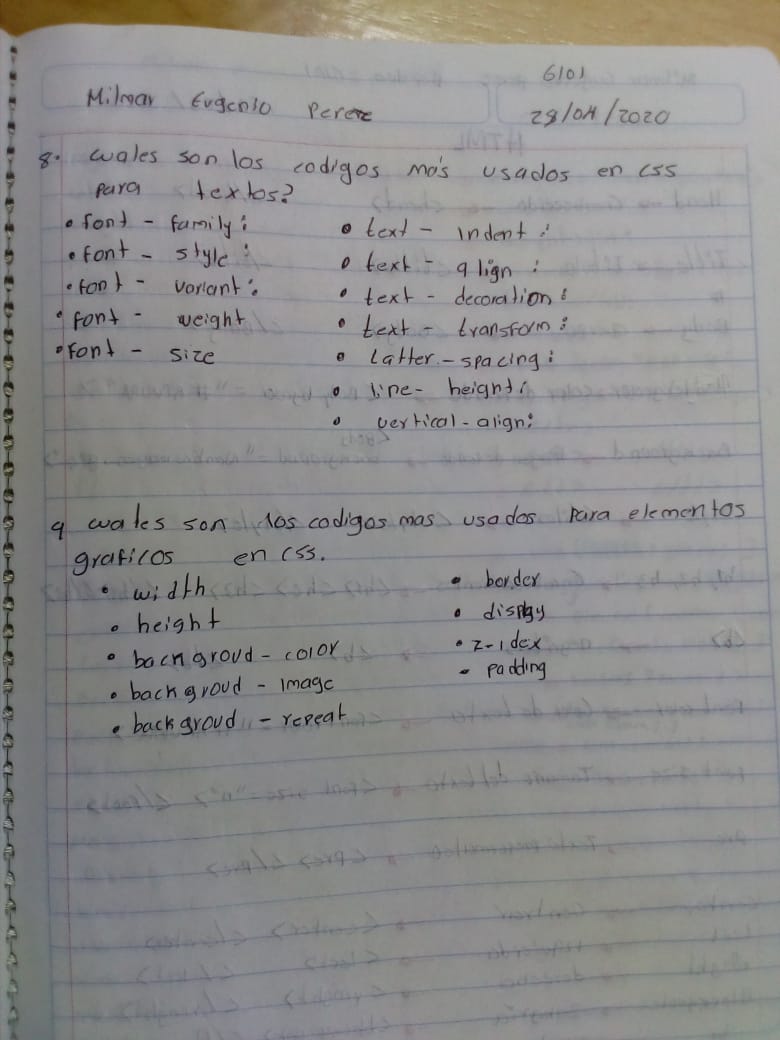 6101
Milmar Eugenio Perez
28/04/2020
8. cuales son los codigos más usados en css
para textos?
• font - family:
• font - style:
• font - variant:
• font - weight
• font - size
• text - indent:
• text - align:
• text - decoration:
• text - transform:
• latter - spacing:
• line - height:
• vertical - align:
9 cuales son los codigos mas usados para elementos
graficos en css.
• width
• height
• backgroud - color
• backgroud - image
• backgroud - repeat
• border
• display
• z-idex
• padding